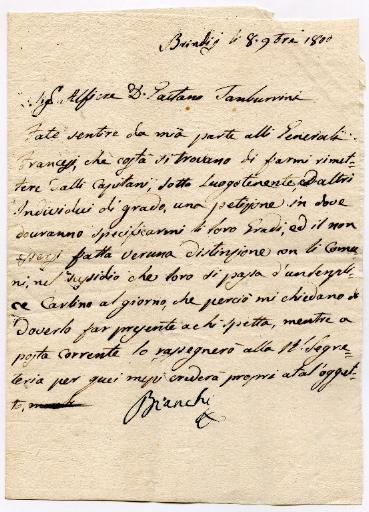 Brindisi li 8. 9bre 1800
Sig. Alfiere D. Gaetano Tamburrini
Fate sentire da mia parte alli Generali
Francesi, che costà si trovano di farmi rimet-
tere dalli Capitani, sotto Luogotenente, ed altri
Individui di grado, una petizione in dove
dovranno specificarmi li loro Gradi, ed il non
essersi fatta veruna distinzione con li Comu-
ni, nel sussidio che loro si passa d'un sempli-
ce Carlino al giorno che perciò mi chiedano di
doverlo far presente a chi spetta, mentre a
posta corrente lo rassegnerò alla Rl. Segre-
teria per quei mezzi crederà propri a tal ogget-
to,
Bianchi